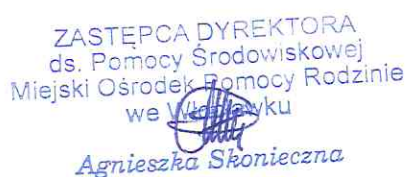 ZASTĘPCA DYREKTORA
ds. Pomocy Środowiskowej
Miejski Ośrodek Pomocy Rodzinie
we Włocławku
Agnieszka Skonieczna